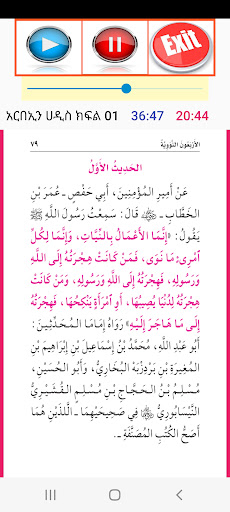 Exit
አርበኢን ሀዲስ ክፍል 01 36:47 20:44
الأَرْبَعُونَ النَّوَوِيَّةُ ٧٩
الحَدِيثُ الأَوَّلُ
عَنْ أَمِيرِ المُؤْمِنِينَ، أَبِي حَفْصٍ ـ عُمَرَ بْنِ
الخَطَّابِ ـ ﷺ قَالَ: سَمِعْتُ رَسُولَ اللَّهِ ﷺ
يَقُولُ: «إِنَّمَا الأَعْمَالُ بِالنِّيَّاتِ، وَإِنَّمَا لِكُلِّ
امْرِىءٍ مَا نَوَى، فَمَنْ كَانَتْ هِجْرَتُهُ إِلَى اللَّهِ
وَرَسُولِهِ، فَهِجْرَتُهُ إِلَى اللَّهِ وَرَسُولِهِ، وَمَنْ كَانَتْ
هِجْرَتُهُ لِدُنْيَا يُصِيبُهَا، أَوِ امْرَأَةٍ يَنْكِحُهَا، فَهِجْرَتُهُ
إِلَى مَا هَاجَرَ إِلَيْهِ» رَوَاهُ إِمَامَا المُحَدِّثِينَ:
أَبُو عَبْدِ اللَّهِ، مُحَمَّدُ بْنُ إِسْمَاعِيلَ بْنِ إِبْرَاهِيمَ بْنِ
المُغِيرَةِ بْنِ بَرْدِزْبَهْ البُخَارِيُّ، وَأَبُو الحُسَيْنِ،
مُسْلِمُ بْنُ الحَجَّاجِ بْنِ مُسْلِمٍ القُشَيْرِيُّ
النَّيْسَابُورِيُّ ﷺ فِي صَحِيحَيْهِمَا ـ اللَّذَيْنِ هُمَا
أَصَحُّ الكُتُبِ المُصَنَّفَةِ ـ.